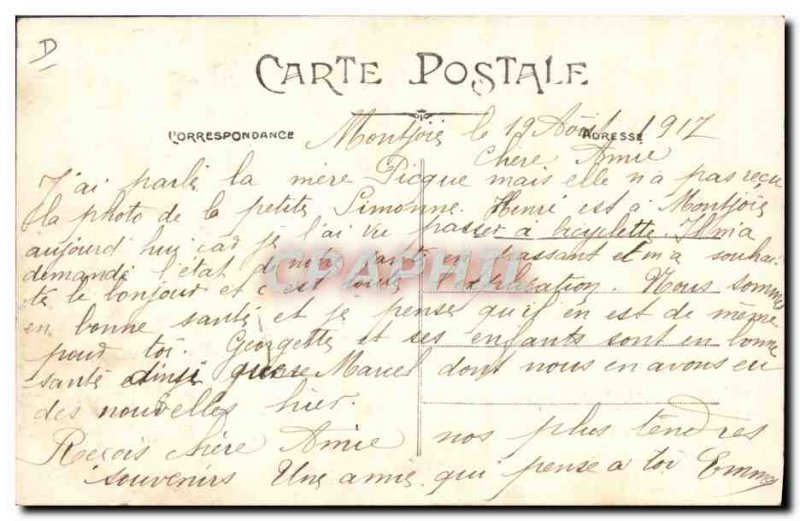 D
CARTE POSTALE
CORRESPONDANCE
ADRESSE
Montjoie le 19 Août 1917
Chère Amie
J'ai parlé la mère Picque mais elle n'a pas reçu
la photo de la petite Simonne. Henri est à Montjoie
aujourd'hui car je l'ai vu passer à bicyclette. Il m'a
demandé l'état de ma santé en passant et m'a souhai-
té le bonjour et c'est toute l'explication. Nous sommes
en bonne santé et je pense qu'il en est de même
pour toi. Georgette et ses enfants sont en bonne
santé ainsi que Marcel dont nous en avons eu
des nouvelles hier.
Reçois chère Amie nos plus tendres
souvenirs Une amie qui pense à toi Emma
CPAPHIL